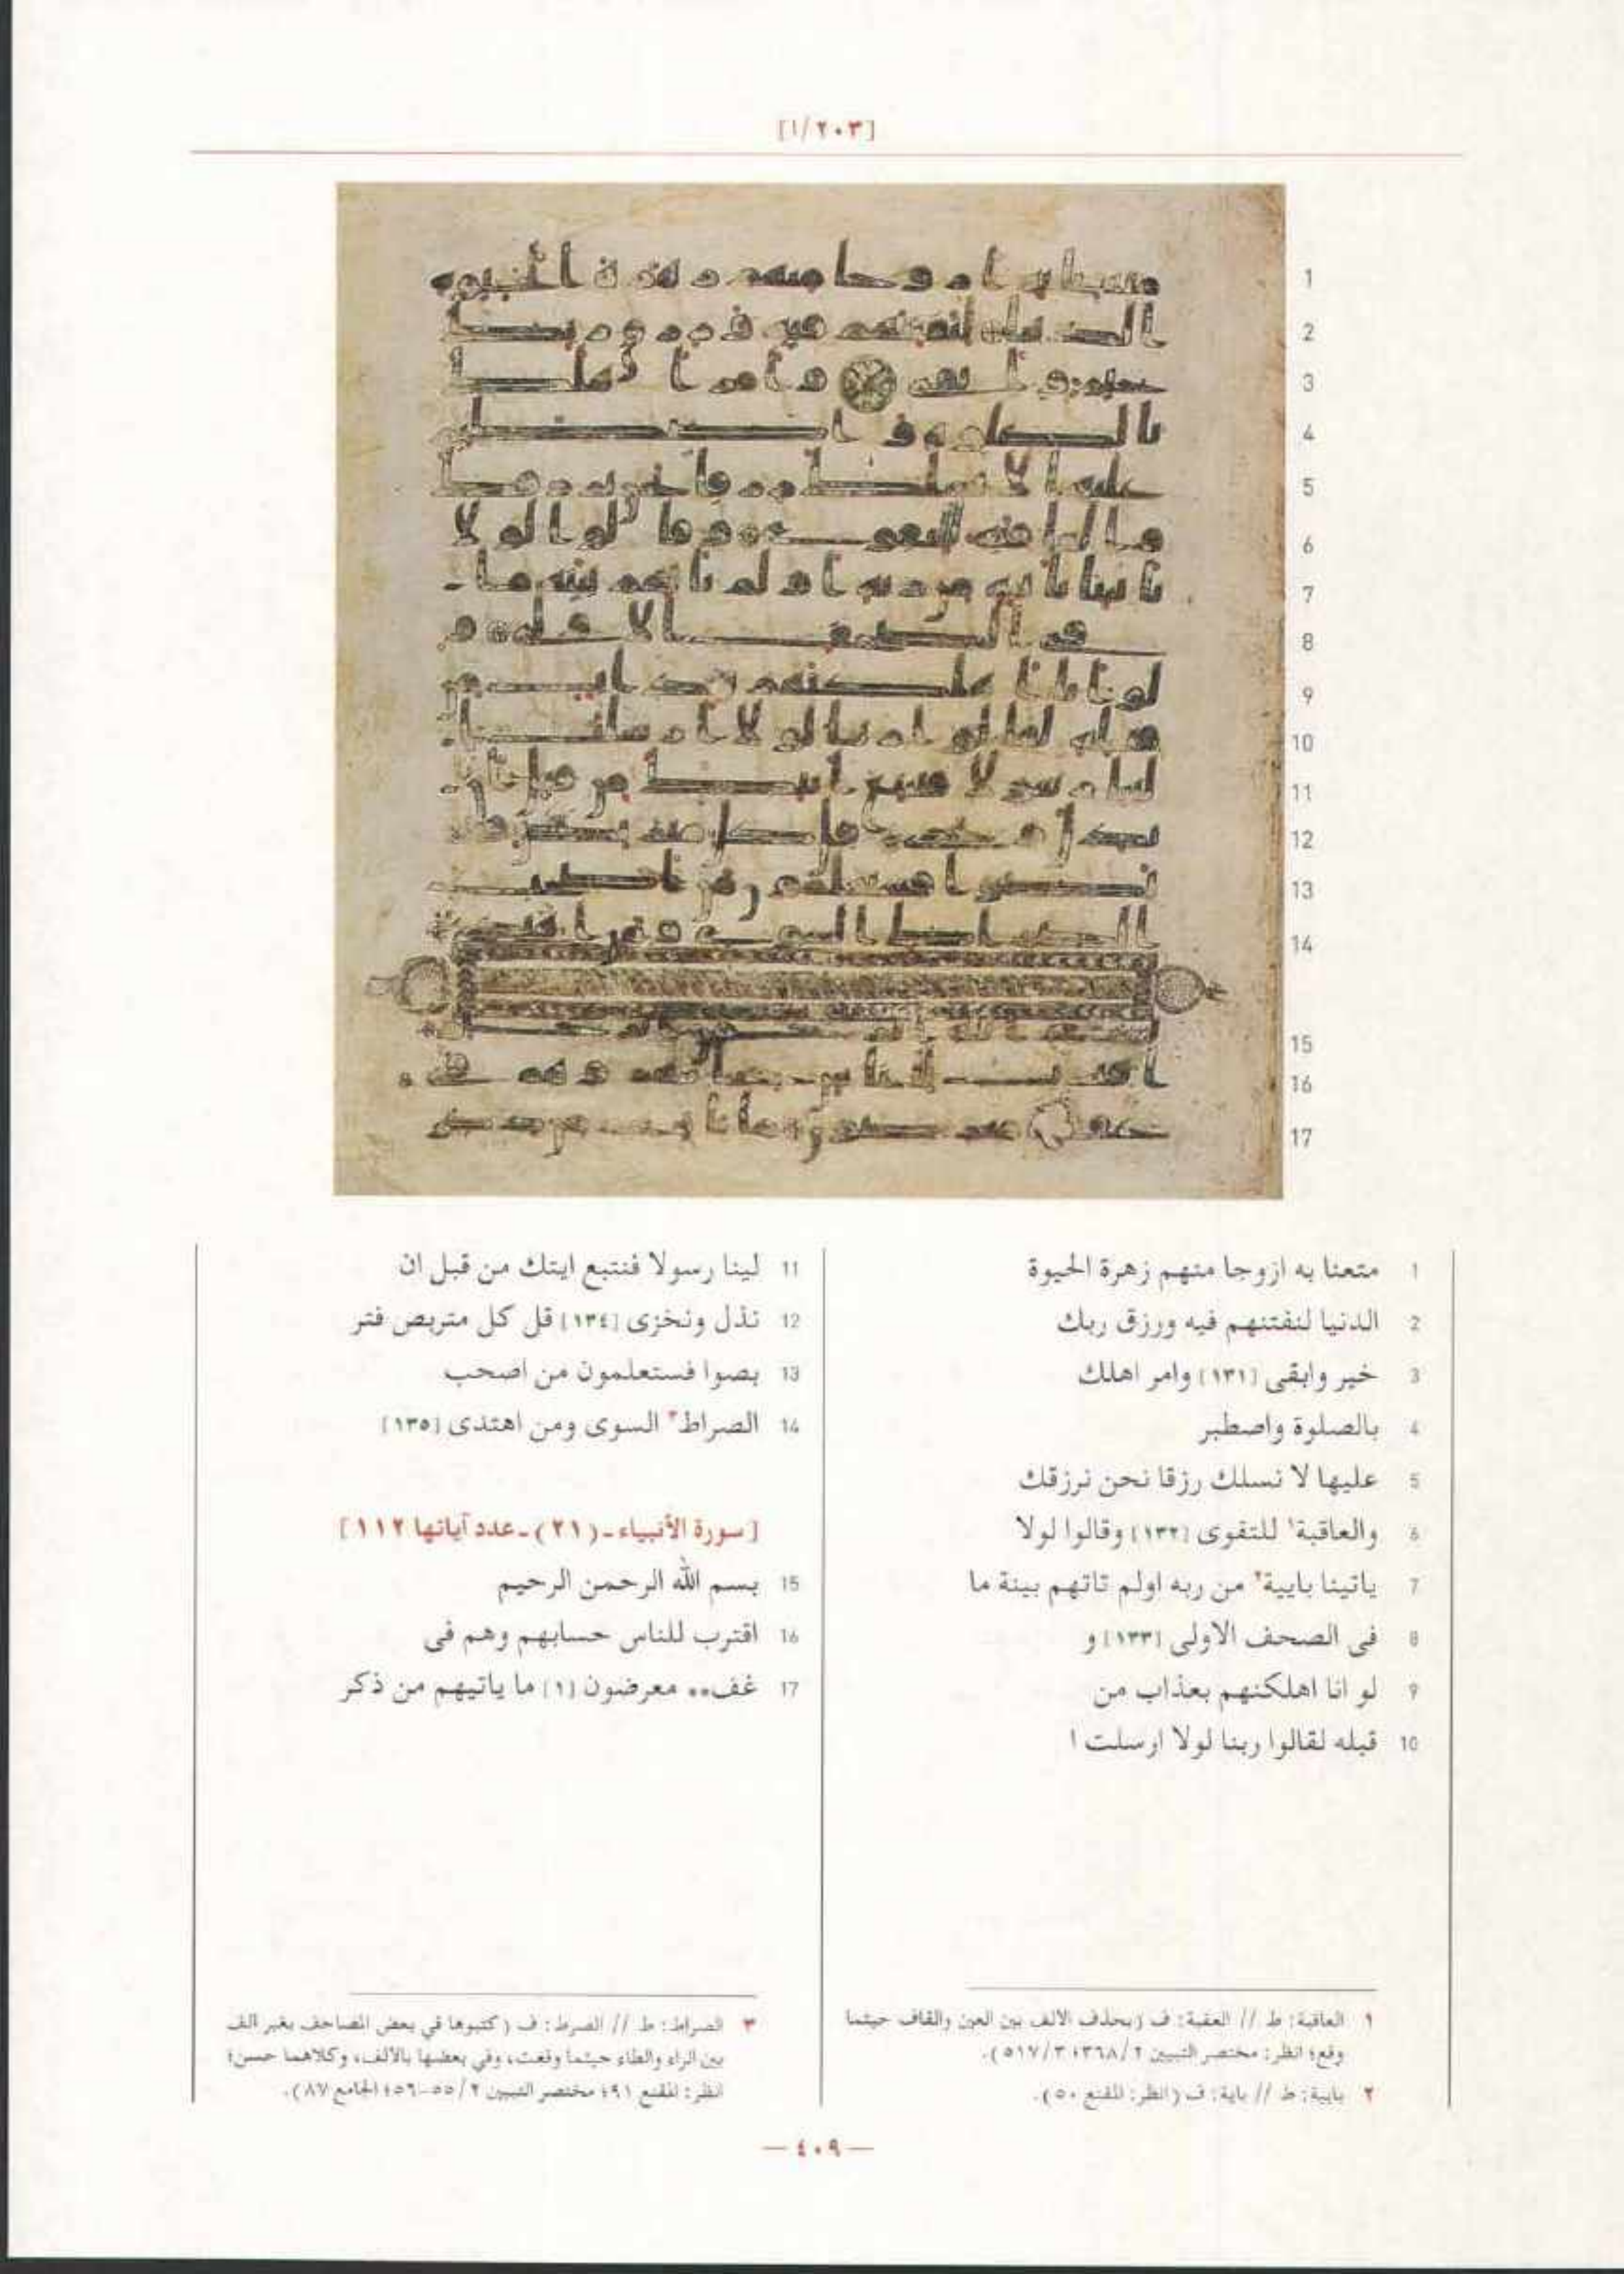 [١/٢٠٣]
1 متعنا به ازوجا منهم زهرة الحيوة
2 الدنيا لنفتنهم فيه ورزق ربك
3 خير وابقى [١٣١] وامر اهلك
4 بالصلوة واصطبر
5 عليها لا نسلك رزقا نحن نرزقك
6 والعاقبة١ للتقوى [١٣٢] وقالوا لولا
7 ياتينا بايية٢ من ربه اولم تاتهم بينة ما
8 فى الصحف الاولى [١٣٣] و
9 لو انا اهلكنهم بعذاب من
10 قبله لقالوا ربنا لولا ارسلت ا
11 لينا رسولا فنتبع ايتك من قبل ان
12 نذل ونخزى [١٣٤] قل كل متربص فتر
13 بصوا فستعلمون من اصحب
14 الصراط٣ السوى ومن اهتدى [١٣٥]
[سورة الأنبياء ـ (٢١) ـ عدد آياتها ١١٢]
15 بسم الله الرحمن الرحيم
16 اقترب للناس حسابهم وهم فى
17 غف•• معرضون [١] ما ياتيهم من ذكر
١ العاقبة: ط // العقبة: ف (بحذف الالف بين العين والقاف حيثما
وقع؛ انظر: مختصر التبيين ٢/٣٦٨؛ ٣/٥١٧).
٢ بايية: ط // باية: ف (انظر: المقنع ٥٠).
٣ الصراط: ط // الصرط: ف (كتبوها في بعض المصاحف بغير الف
بين الراء والطاء حيثما وقعت، وفي بعضها بالألف، وكلاهما حسن؛
انظر: المقنع ٩١؛ مختصر التبيين ٢/٥٥-٥٦؛ الجامع ٨٧).
— ٤٠٩ —